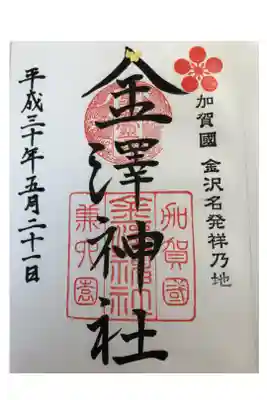 加賀國 金沢名発祥乃地
金澤神社
加賀國
金澤神社
兼六園
平成三十年五月二十一日